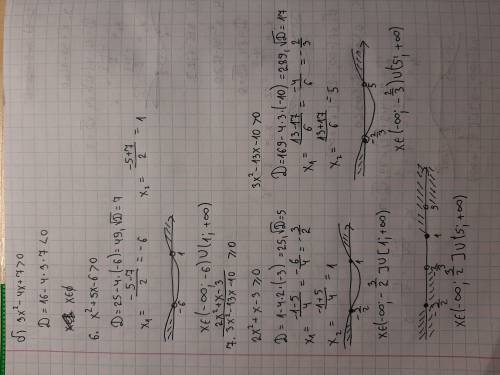 б) 3x²-4x+7>0
D=16-4·3·7<0
x∈∅
6. x²+5x-6>0
D=25-4·(-6)=49, √D=7
x₁ = (-5-7)/2 = -6
x₂ = (-5+7)/2 = 1
-6 1
x∈(-∞; -6)∪(1; +∞)
7. (2x²+x-3)/(3x²-13x-10) ≥0
2x²+x-3 ≥0
D=1-4·2·(-3)=25, √D=5
x₁ = (-1-5)/4 = -6/4 = -3/2
x₂ = (-1+5)/4 = 1
-3/2 1
x∈(-∞; -3/2]∪[1; +∞)
3x²-13x-10>0
D=169-4·3·(-10)=289, √D=17
x₁ = (13-17)/6 = -4/6 = -2/3
x₂ = (13+17)/6 = 5
-2/3 5
x∈(-∞; -2/3)∪(5; +∞)
-3/2 -2/3 1 5
x∈(-∞; -3/2]∪(5; +∞)